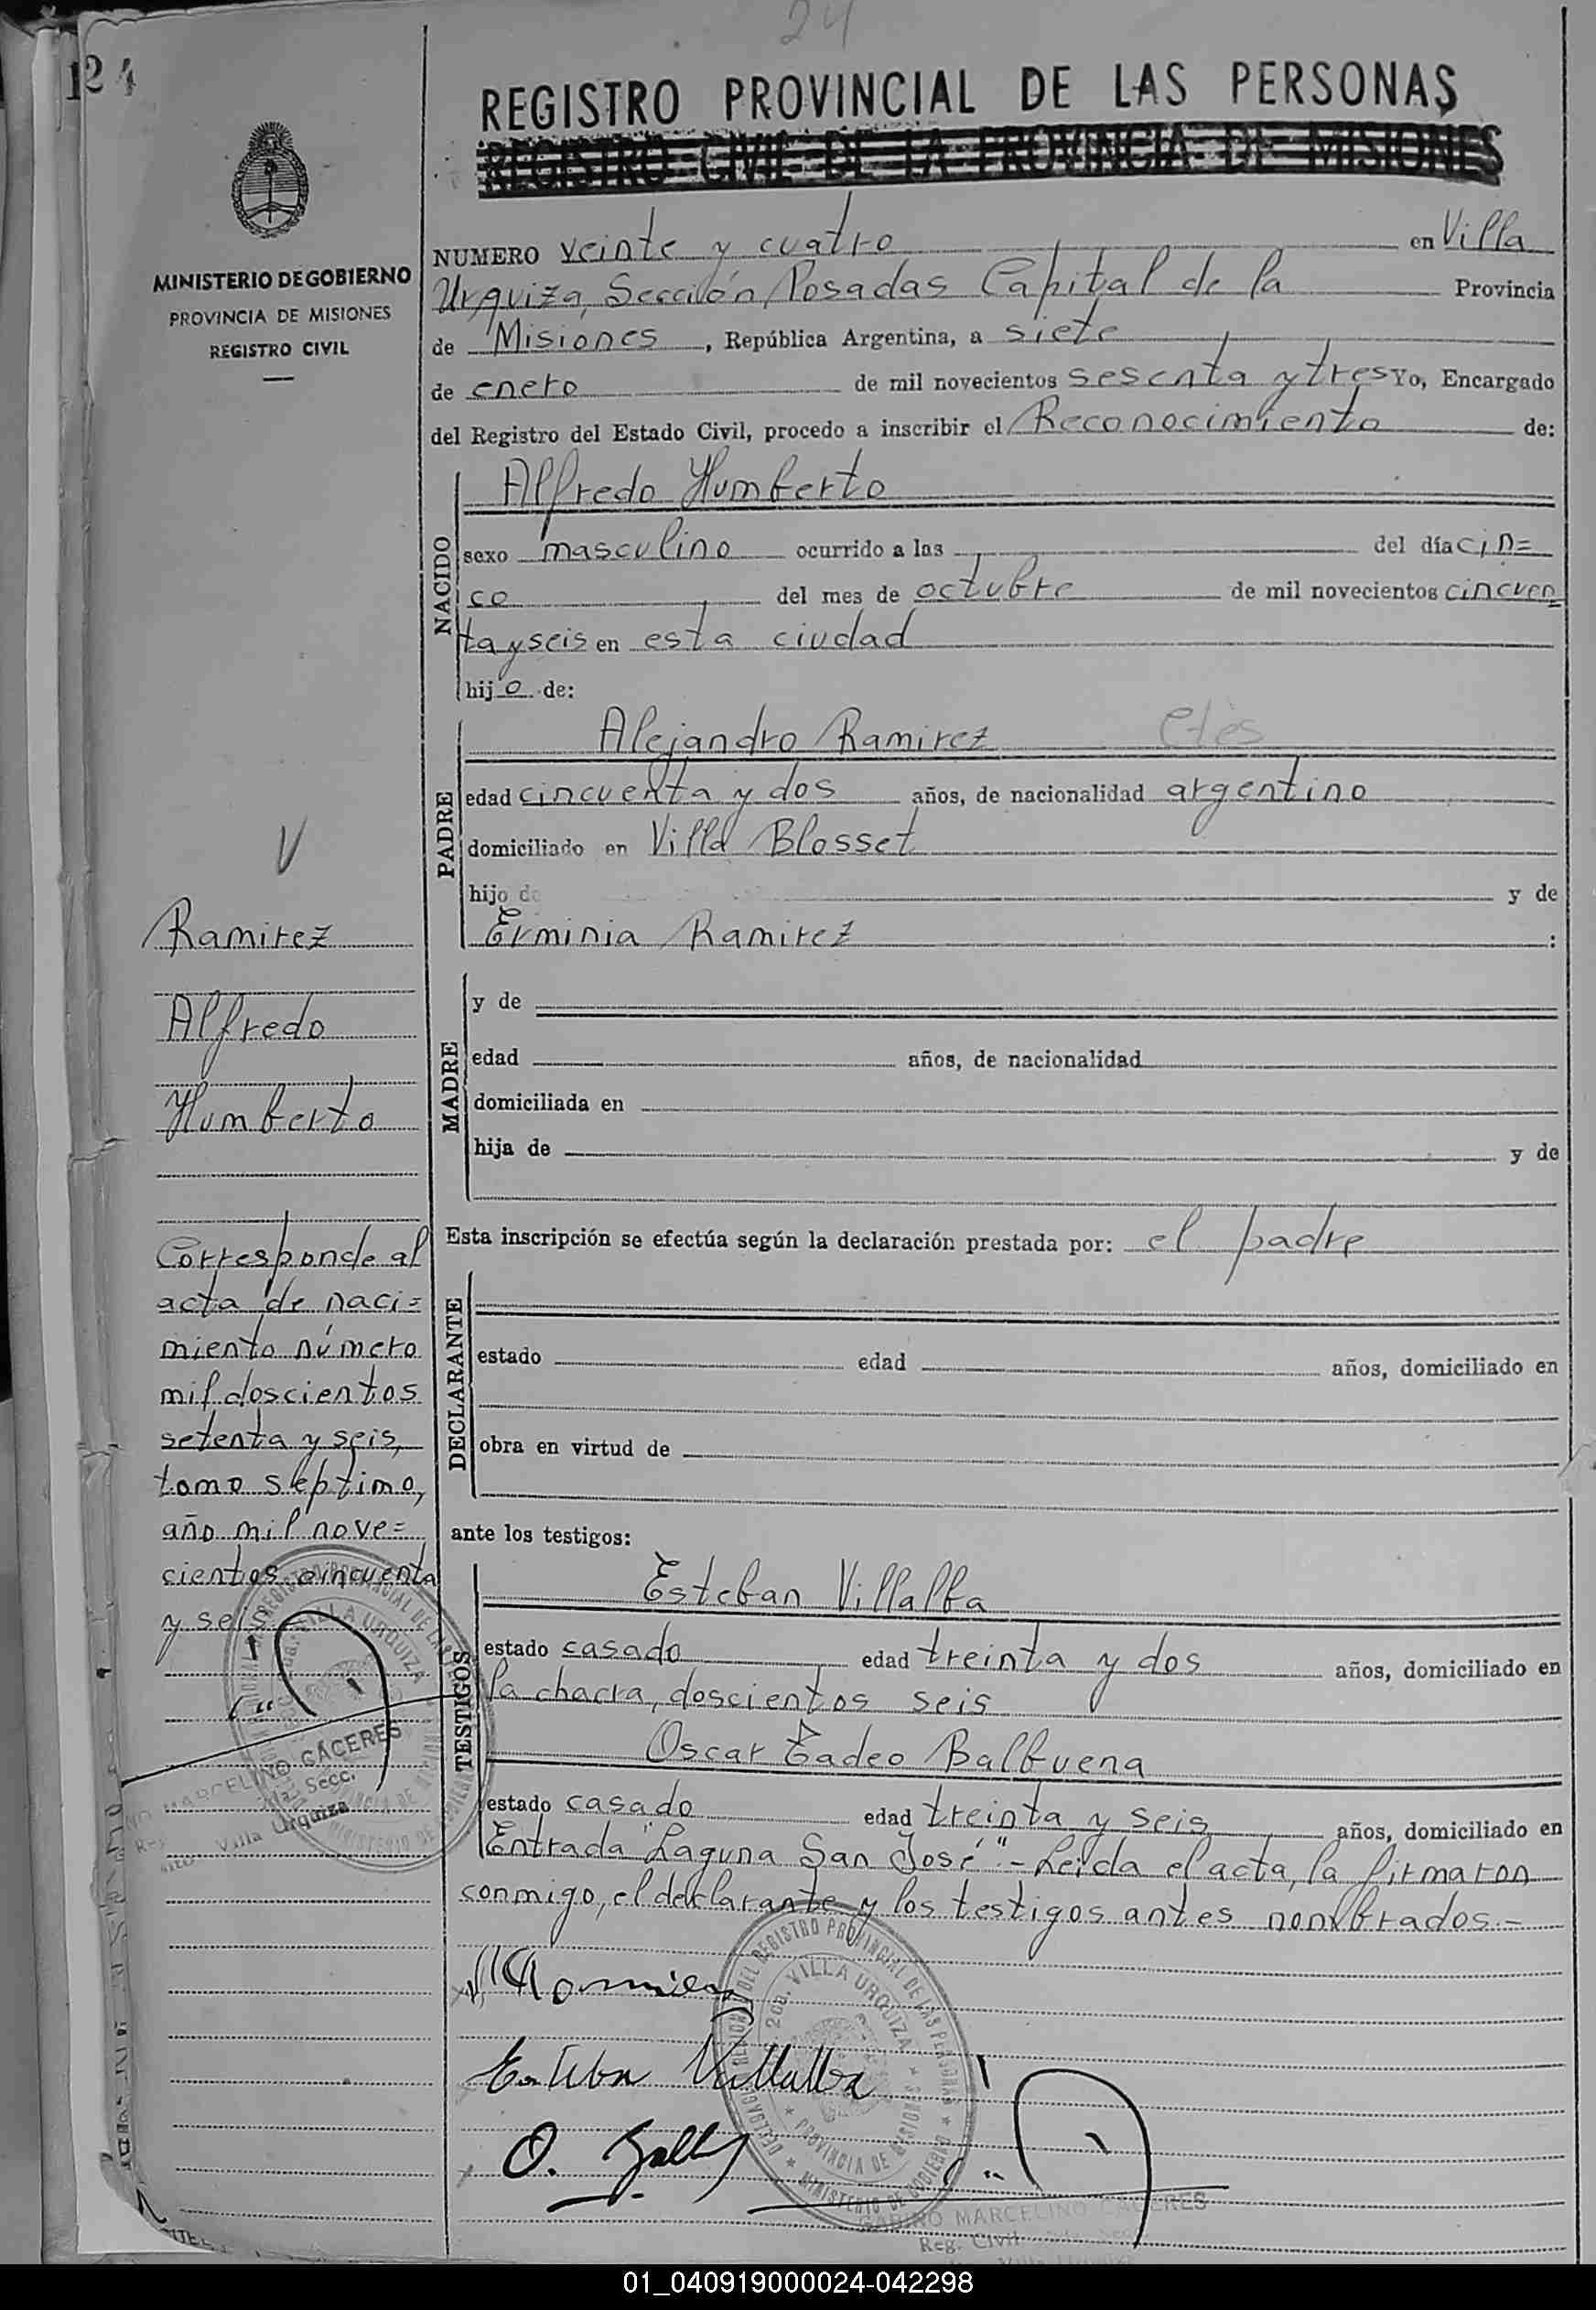 24
124
REGISTRO PROVINCIAL DE LAS PERSONAS
REGISTRO CIVIL DE LA PROVINCIA DE MISIONES
MINISTERIO DE GOBIERNO
PROVINCIA DE MISIONES
REGISTRO CIVIL
NUMERO veinte y cuatro en Villa
Urquiza, Sección Posadas Capital de la Provincia
de Misiones, República Argentina, a siete
de enero de mil novecientos sesenta y tres Yo, Encargado
del Registro del Estado Civil, procedo a inscribir el Reconocimiento de:
NACIDO
Alfredo Humberto
sexo masculino ocurrido a las del día cin=
co del mes de octubre de mil novecientos cincuen=
ta y seis en esta ciudad
hijo de:
PADRE
Alejandro Ramirez
edad cincuenta y dos años, de nacionalidad argentino
domiciliado en Villa Blosset
hijo de y de
Erminia Ramirez :
MADRE
y de
edad años, de nacionalidad
domiciliada en
hija de y de
Esta inscripción se efectúa según la declaración prestada por: el padre
DECLARANTE
estado edad años, domiciliado en
obra en virtud de
ante los testigos:
TESTIGOS
Esteban Villalba
estado casado edad treinta y dos años, domiciliado en
la chacra, doscientos seis
Oscar Tadeo Balbuena
estado casado edad treinta y seis años, domiciliado en
Entrada "Laguna San José".- Leida el acta, la firmaron
conmigo, el declarante y los testigos antes nombrados.-
V
Ramirez
Alfredo
Humberto
Corresponde al
acta de naci=
miento número
mil doscientos
setenta y seis,
tomo septimo,
año mil nove=
cientos cincuenta
y seis
MARCELINO CÁCERES
Secc.
Villa Urquiza
Esteban Villalba
DELEGACION DEL REGISTRO PROVINCIAL DE LAS PERSONAS
2da. VILLA URQUIZA
PROVINCIA DE MISIONES
MINISTERIO DE GOBIERNO
GABINO MARCELINO CACERES
Reg. Civil
01_040919000024-042298